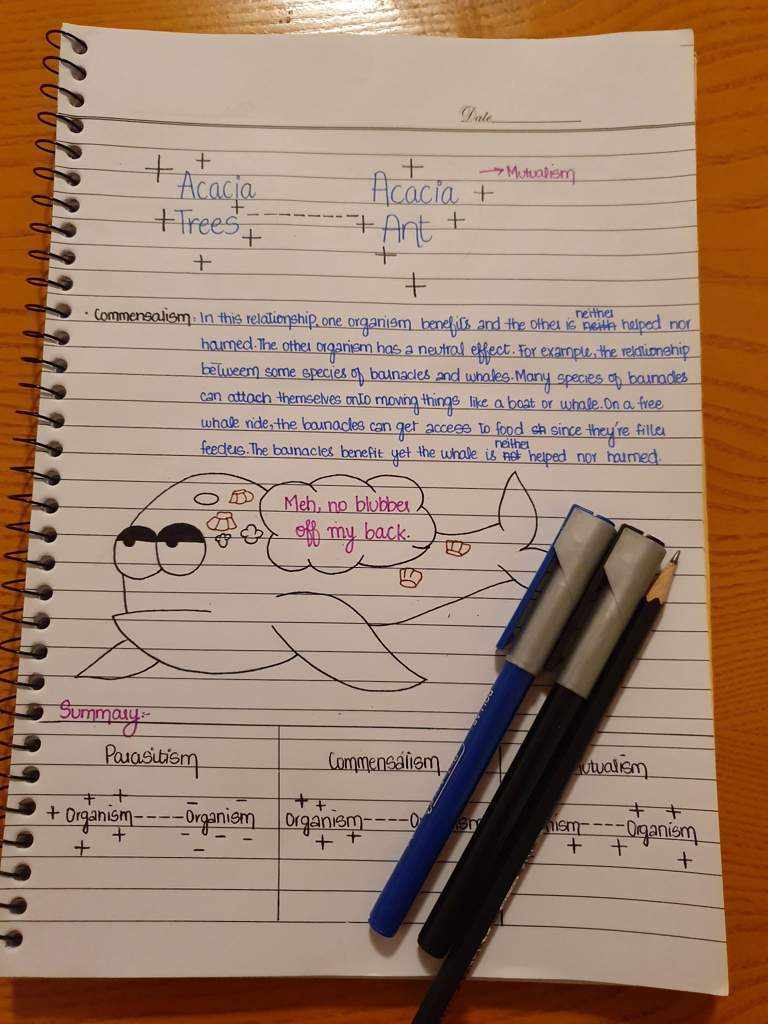 Date
+ +
Acacia Acacia + → Mutualism
+ Trees + ------ + Ant +
+ + +
+
· Commensalism: In this relationship, one organism benefits and the other is neither neith helped nor
harmed. The other organism has a neutral effect. For example, the relationship
between some species of barnacles and whales. Many species of barnacles
can attach themselves onto moving things like a boat or whale. On a free
whale ride, the barnacles can get access to food sh since they're filter
feeders. The barnacles benefit yet the whale is neither not helped nor harmed.
Meh, no blubber
off my back.
Summary:-
Parasitism Commensalism utualism
+ + - - + + + +
+ Organism ----- Organism Organism ---- O ism ism ---- Organism
+ + - - - - + + + + +